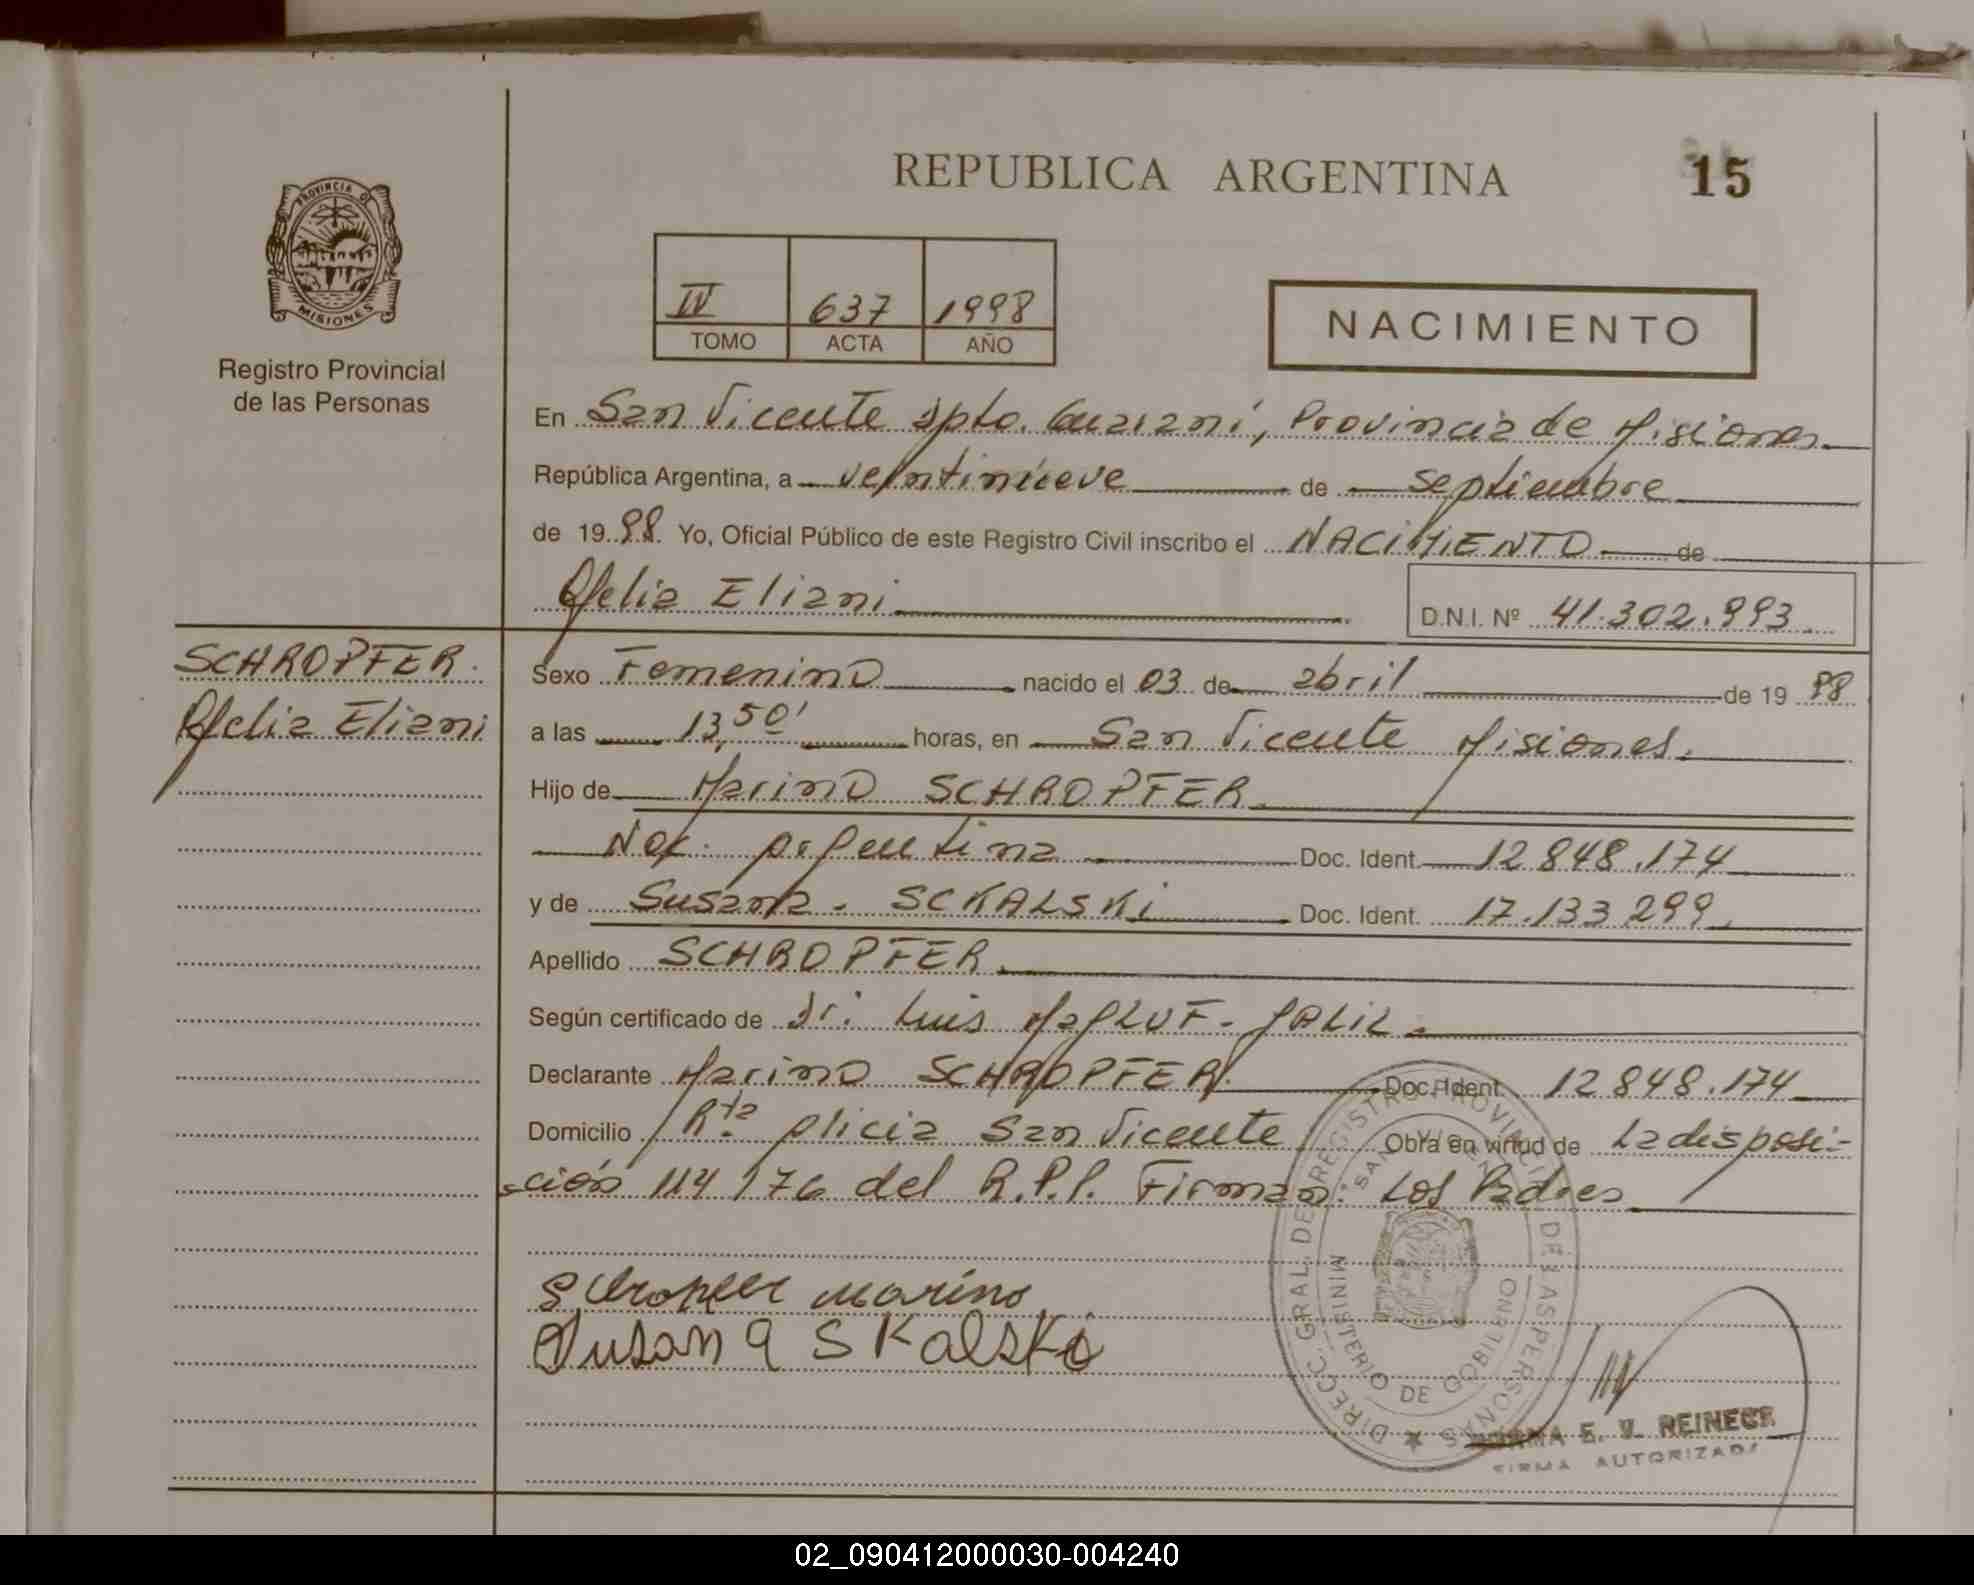 REPUBLICA ARGENTINA
15
PROVINCIA DE
MISIONES
Registro Provincial
de las Personas
IV 637 1998
TOMO ACTA AÑO
NACIMIENTO
En San Vicente Dpto. Guaraní, Provincia de Misiones
República Argentina, a veintinueve de septiembre
de 1998. Yo, Oficial Público de este Registro Civil inscribo el NACIMIENTO de
Ofelia Eliani
D.N.I. Nº 41.302.993
SCHROPFER.
Ofelia Eliani
Sexo Femenino nacido el 03 de abril de 1998
a las 13,50' horas, en San Vicente Misiones.
Hijo de Marino SCHROPFER
Nac. Argentina Doc. Ident. 12.848.174
y de Susana. SCKALSKi Doc. Ident. 17.133.299
Apellido SCHROPFER.
Según certificado de Dr. Luis MaPLUF- JALIL.
Declarante Marino SCHROPFER. Doc. Ident. 12.848.174
Domicilio Rta Alicia San Vicente Obra en virtud de La disposi-
ción 114/76 del R.P.P. Firman: Los Padres
Schropfer marino
Susana SKalski
DIRECC. GRAL. DE REGISTRO PROVINCIAL DE LAS PERSONAS
SAN VICENTE
MINISTERIO DE GOBIERNO
NORMA E. V. REINECK
FIRMA AUTORIZADA
02_090412000030-004240